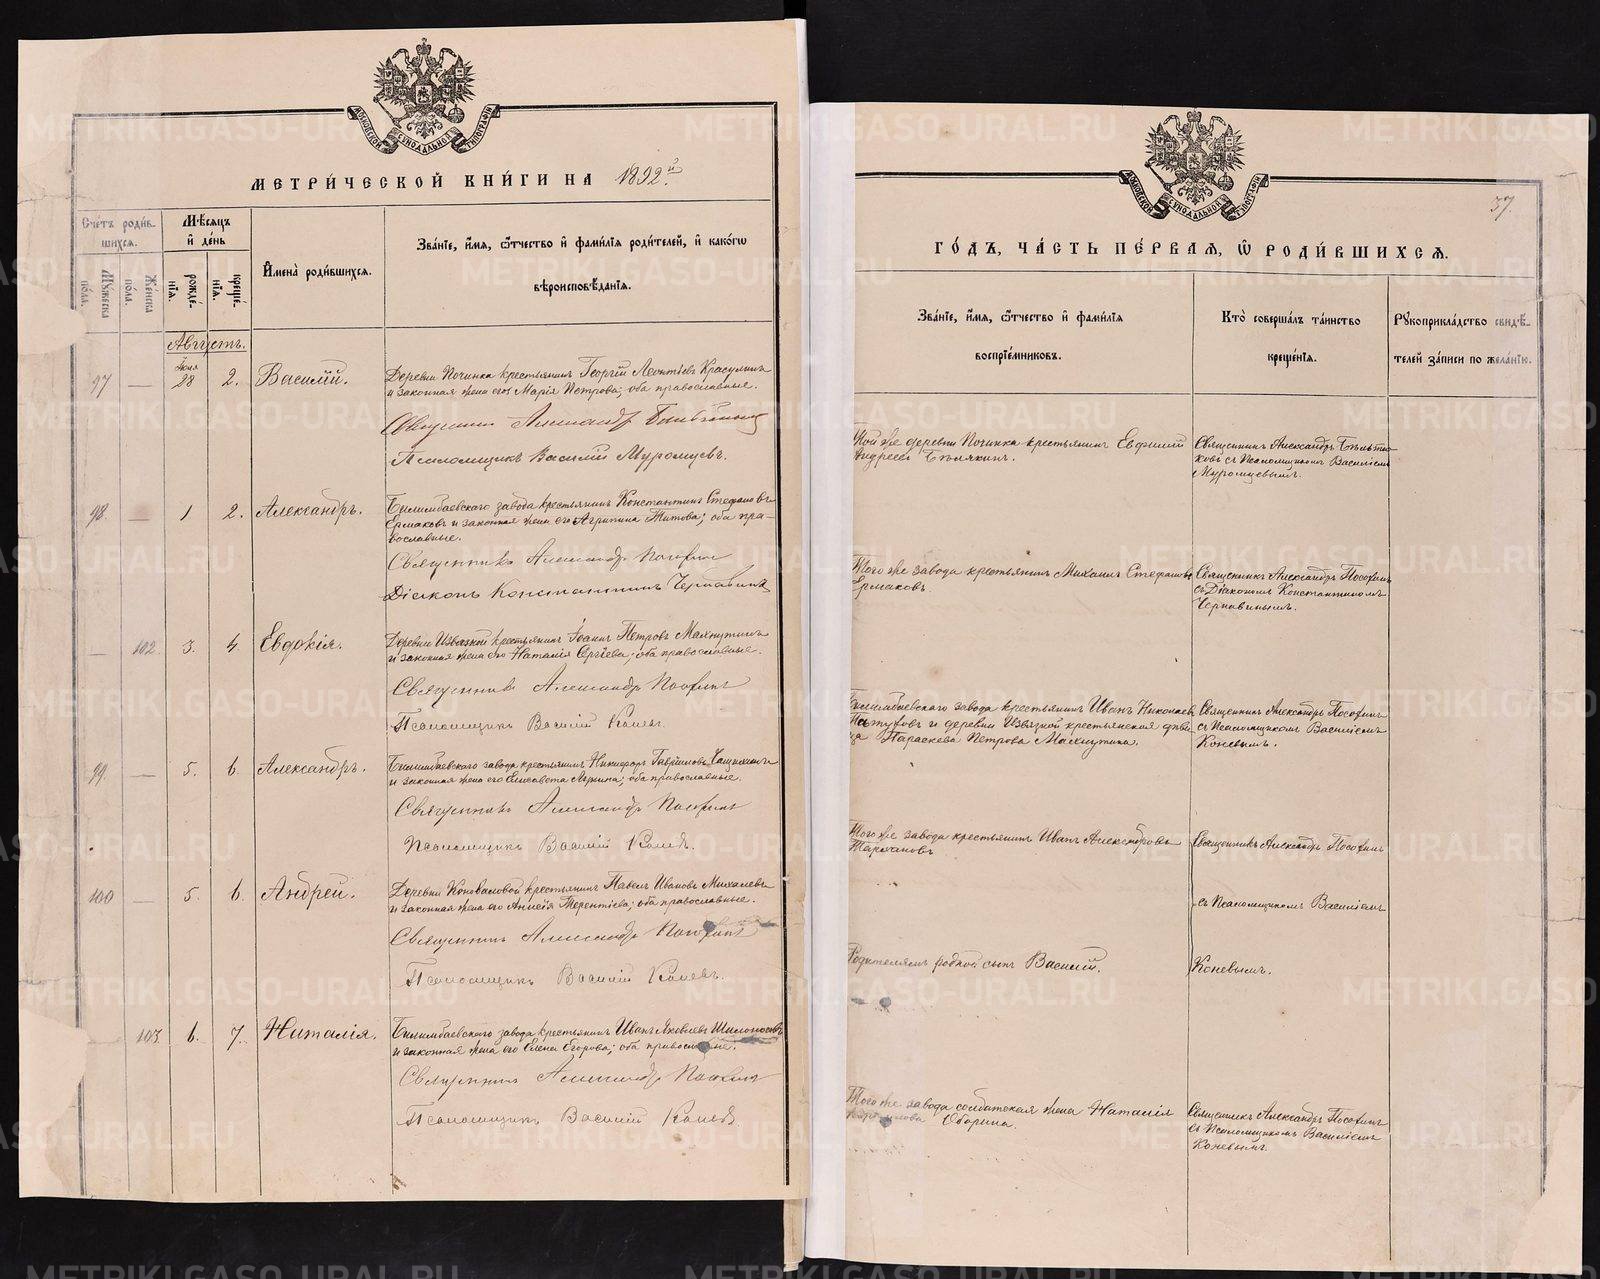 МЕТРИ́ЧЕСКОЙ КНИ́ГИ НА 1892й.
Сче́тъ роди́в-
шихся.
Мѣсяцъ
и де́нь
Имена̀ роди́вшихся.
Зва́нїе, и́мя, ѻ҆́тчество и фами́лїя роди́телей, и како́гѡ
вѣроисповѣ́данїя.
Мꙋ́жеска по́ла.
Же́нска по́ла.
рожде́нїя.
креще́нїя.
Августъ.
97
—
Июля 28
2.
Василій.
Деревни Починка крестьянинъ Георгій Леонтіевъ Красулинъ
и законная жена его Марія Петрова; оба православные.
Священникъ Александръ
Псаломщикъ Василій Муромцевъ.
98.
—
1
2.
Александръ.
Билимбаевскаго завода крестьянинъ Константинъ Стефановъ
Ермаковъ и законная жена его Агрипина Титова; оба пра-
вославные.
Священникъ Александръ Посохинъ
Діаконъ Константинъ Чернавинъ
—
102.
3.
4.
Евдокія.
Деревни Извязкой крестьянинъ Іоаннъ Петровъ Махнутинъ
и законная жена его Наталія Сергіева; оба православные.
Священникъ Александръ Посохинъ
Псаломщикъ Василій Коневъ.
99.
—
5.
6.
Александръ.
Билимбаевскаго завода крестьянинъ Никифоръ Гавриловъ
и законная жена его Елисавета; оба православные.
Священникъ Александръ Посохинъ
Псаломщикъ Василій Коневъ.
100
—
5.
6.
Андрей.
Деревни Коноваловой крестьянинъ Павелъ Ивановъ Михалевъ
и законная жена его Анисія Терентіева; оба православные.
Священникъ Александръ Посохинъ
Псаломщикъ Василій Коневъ.
103.
6.
7.
Наталія.
Билимбаевскаго завода крестьянинъ Иванъ Яковлевъ Шилоносовъ
и законная жена его Елена Егорова; оба православные.
Священникъ Александръ Посохинъ
Псаломщикъ Василій Коневъ.
37.
ГО́ДЪ, ЧА́СТЬ ПЕ́РВАЯ, Ѡ РОДИ́ВШИХСЯ.
Зва́нїе, и́мя, ѻ҆́тчество и фами́лїя
воспрїе́мниковъ.
Кто̀ соверша́лъ та́инство
креще́нїя.
Рꙋкоприкла́дство свидѣ́-
телей за́писи по жела́нїю.
Той же деревни Починка крестьянинъ Евфимій
Андреевъ Бѣлякинъ.
Священникъ Александръ Бѣльтю-
ковъ съ Псаломщикомъ Василіемъ
Муромцевымъ.
Того же завода крестьянинъ Михаилъ Стефановъ
Ермаковъ.
Священникъ Александръ Посохинъ
съ Діакономъ Константиномъ
Чернавинымъ.
Билимбаевскаго завода крестьянинъ Иванъ Николаевъ
Патуровъ и деревни Извязкой крестьянская дѣви-
ца Параскева Петрова Махнутина.
Священникъ Александръ Посохинъ
съ Псаломщикомъ Василіемъ
Коневымъ.
Того же завода крестьянинъ Иванъ Александровъ
Тархановъ
Священникъ Александръ Посохинъ
съ Псаломщикомъ Василіемъ
Родителямъ родной сынъ Василій.
Коневымъ.
Того же завода солдатская жена Наталія
Оборина.
Священникъ Александръ Посохинъ
съ Псаломщикомъ Василіемъ
Коневымъ.
METRIKI.GASO-URAL.RU